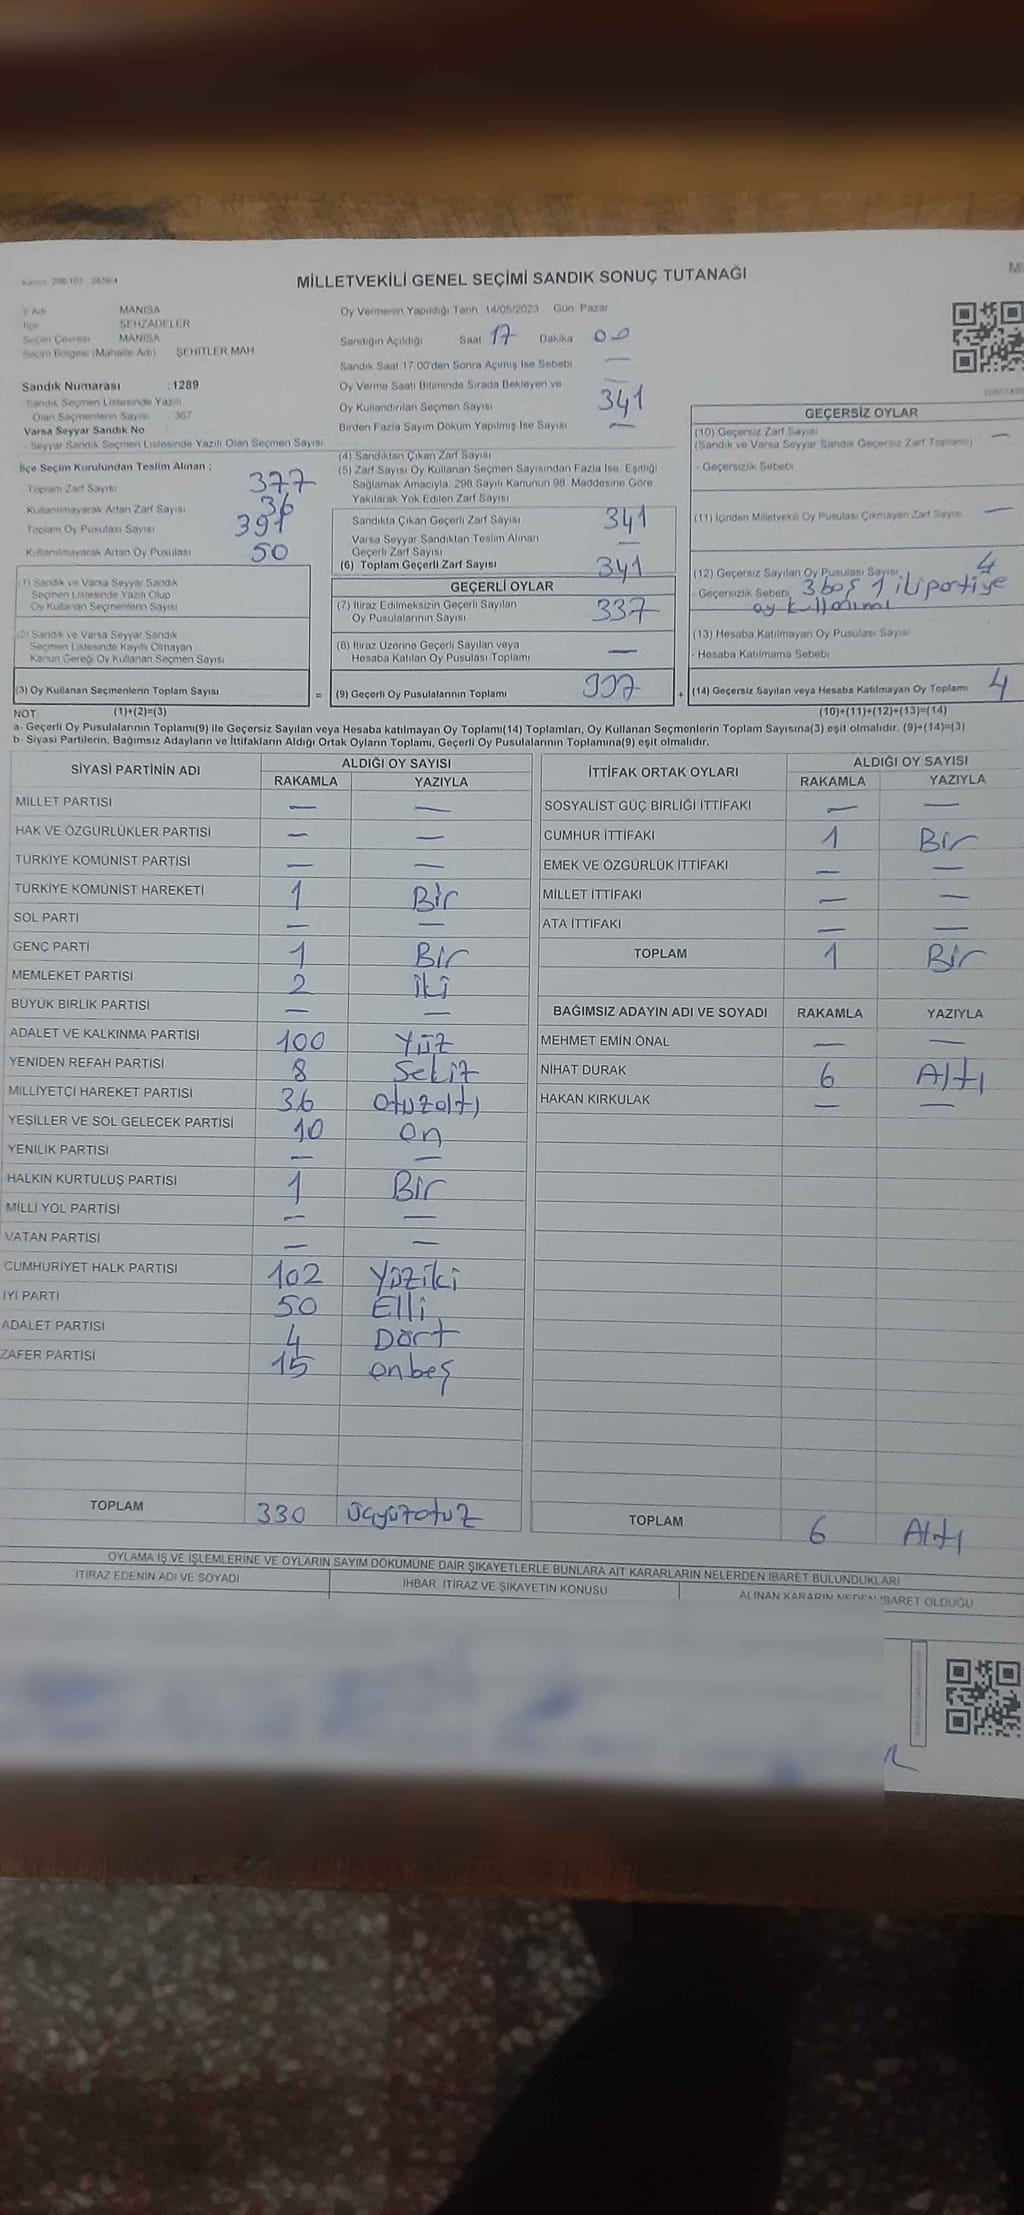 MİLLETVEKİLİ GENEL SEÇİMİ SANDIK SONUÇ TUTANAĞI
İl Adı MANİSA
İlçe ŞEHZADELER
Seçim Çevresi MANİSA
Seçim Bölgesi (Mahalle Adı) ŞEHİTLER MAH.
Sandık Numarası :1289
Sandık Seçmen Listesinde Yazılı
Olan Seçmenlerin Sayısı 367
Varsa Seyyar Sandık No
Seyyar Sandık Seçmen Listesinde Yazılı Olan Seçmen Sayısı
İlçe Seçim Kurulundan Teslim Alınan ;
Toplam Zarf Sayısı 377
Kullanılmayarak Artan Zarf Sayısı 36
Toplam Oy Pusulası Sayısı 391
Kullanılmayarak Artan Oy Pusulası 50
(1) Sandık ve Varsa Seyyar Sandık
Seçmen Listesinde Yazılı Olup
Oy Kullanan Seçmenlerin Sayısı
(2) Sandık ve Varsa Seyyar Sandık
Seçmen Listesinde Kayıtlı Olmayan
Kanun Gereği Oy Kullanan Seçmen Sayısı
(3) Oy Kullanan Seçmenlerin Toplam Sayısı =
(1)+(2)=(3)
Oy Vermenin Yapıldığı Tarih 14/05/2023 Gün Pazar
Sandığın Açıldığı Saat 17 Dakika 00
Sandık Saat 17:00'den Sonra Açılmış İse Sebebi —
Oy Verme Saati Bitiminde Sırada Bekleyen ve
Oy Kullandırılan Seçmen Sayısı 341
Birden Fazla Sayım Döküm Yapılmış İse Sayısı —
(4) Sandıktan Çıkan Zarf Sayısı
(5) Zarf Sayısı Oy Kullanan Seçmen Sayısından Fazla İse, Eşitliği
Sağlamak Amacıyla, 298 Sayılı Kanunun 98. Maddesine Göre
Yakılarak Yok Edilen Zarf Sayısı
Sandıkta Çıkan Geçerli Zarf Sayısı 341
Varsa Seyyar Sandıktan Teslim Alınan
Geçerli Zarf Sayısı —
(6) Toplam Geçerli Zarf Sayısı 341
GEÇERLİ OYLAR
(7) İtiraz Edilmeksizin Geçerli Sayılan
Oy Pusulalarının Sayısı 337
(8) İtiraz Üzerine Geçerli Sayılan veya
Hesaba Katılan Oy Pusulası Toplamı —
(9) Geçerli Oy Pusulalarının Toplamı 337 +
GEÇERSİZ OYLAR
(10) Geçersiz Zarf Sayısı —
(Sandık ve Varsa Seyyar Sandık Geçersiz Zarf Toplamı)
- Geçersizlik Sebebi
(11) İçinden Milletvekili Oy Pusulası Çıkmayan Zarf Sayısı —
(12) Geçersiz Sayılan Oy Pusulası Sayısı 4
- Geçersizlik Sebebi 3 boş 1 iki partiye
oy kullanımı
(13) Hesaba Katılmayan Oy Pusulası Sayısı
- Hesaba Katılmama Sebebi
(14) Geçersiz Sayılan veya Hesaba Katılmayan Oy Toplamı 4
(10)+(11)+(12)+(13)=(14)
NOT
a- Geçerli Oy Pusulalarının Toplamı(9) ile Geçersiz Sayılan veya Hesaba katılmayan Oy Toplamı(14) Toplamları, Oy Kullanan Seçmenlerin Toplam Sayısına(3) eşit olmalıdır. (9)+(14)=(3)
b- Siyasi Partilerin, Bağımsız Adayların ve İttifakların Aldığı Ortak Oyların Toplamı, Geçerli Oy Pusulalarının Toplamına(9) eşit olmalıdır.
SİYASİ PARTİNİN ADI ALDIĞI OY SAYISI
RAKAMLA YAZIYLA
MİLLET PARTİSİ — —
HAK VE ÖZGÜRLÜKLER PARTİSİ — —
TÜRKİYE KOMÜNİST PARTİSİ — —
TÜRKİYE KOMÜNİST HAREKETİ 1 Bir
SOL PARTİ — —
GENÇ PARTİ 1 Bir
MEMLEKET PARTİSİ 2 iki
BÜYÜK BİRLİK PARTİSİ — —
ADALET VE KALKINMA PARTİSİ 100 Yüz
YENİDEN REFAH PARTİSİ 8 Sekiz
MİLLİYETÇİ HAREKET PARTİSİ 36 otuzaltı
YEŞİLLER VE SOL GELECEK PARTİSİ 10 on
YENİLİK PARTİSİ — —
HALKIN KURTULUŞ PARTİSİ 1 Bir
MİLLİ YOL PARTİSİ — —
VATAN PARTİSİ — —
CUMHURİYET HALK PARTİSİ 102 Yüziki
İYİ PARTİ 50 Elli
ADALET PARTİSİ 4 Dört
ZAFER PARTİSİ 15 onbeş
TOPLAM 330 üçyüzotuz
İTTİFAK ORTAK OYLARI ALDIĞI OY SAYISI
RAKAMLA YAZIYLA
SOSYALİST GÜÇ BİRLİĞİ İTTİFAKI — —
CUMHUR İTTİFAKI 1 Bir
EMEK VE ÖZGÜRLÜK İTTİFAKI — —
MİLLET İTTİFAKI — —
ATA İTTİFAKI — —
TOPLAM 1 Bir
BAĞIMSIZ ADAYIN ADI VE SOYADI RAKAMLA YAZIYLA
MEHMET EMİN ÖNAL — —
NİHAT DURAK 6 Altı
HAKAN KIRKULAK — —
TOPLAM 6 Altı
OYLAMA İŞ VE İŞLEMLERİNE VE OYLARIN SAYIM DÖKÜMÜNE DAİR ŞİKAYETLERLE BUNLARA AİT KARARLARIN NELERDEN İBARET BULUNDUKLARI
İTİRAZ EDENİN ADI VE SOYADI İHBAR, İTİRAZ VE ŞİKAYETİN KONUSU ALINAN KARARIN NEDEN İBARET OLDUĞU